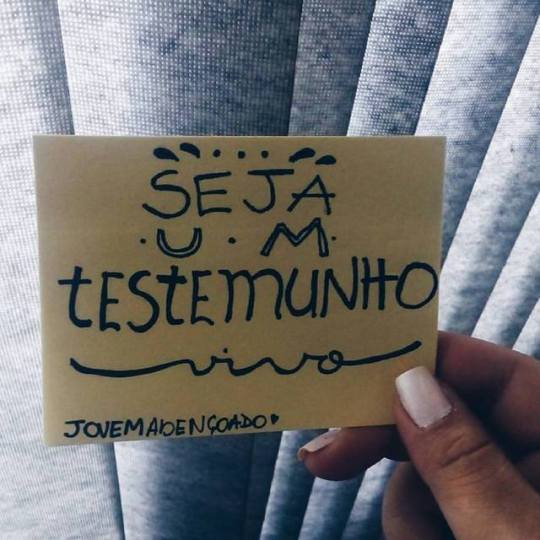 SEJA
UM
tESTEMUNHO
vivo
JOVEMABENÇOADO♥